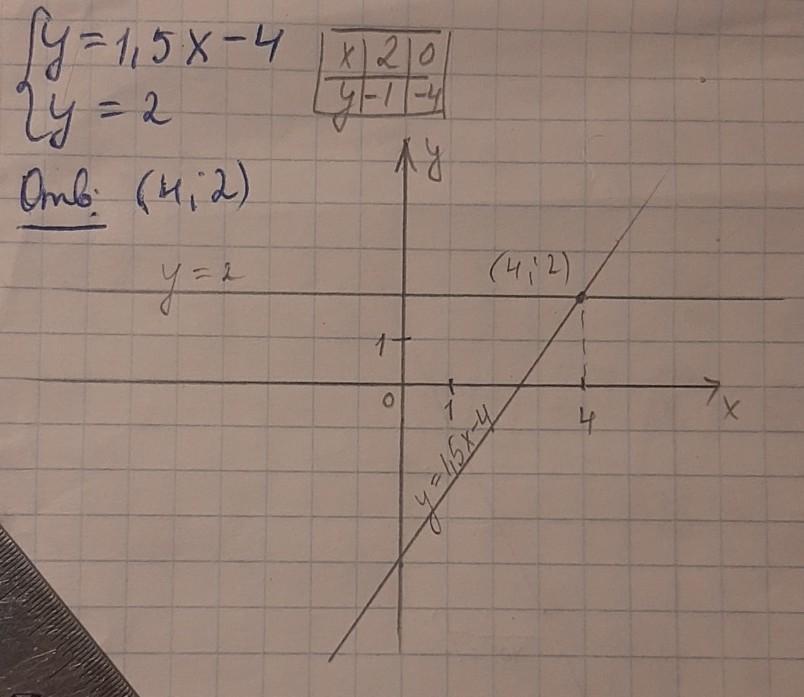 y = 1,5x - 4
y = 2
x 2 0
y -1 -4
Отв: (4; 2)
y
y = 2
(4; 2)
1
0
1
4
x
y = 1,5x - 4